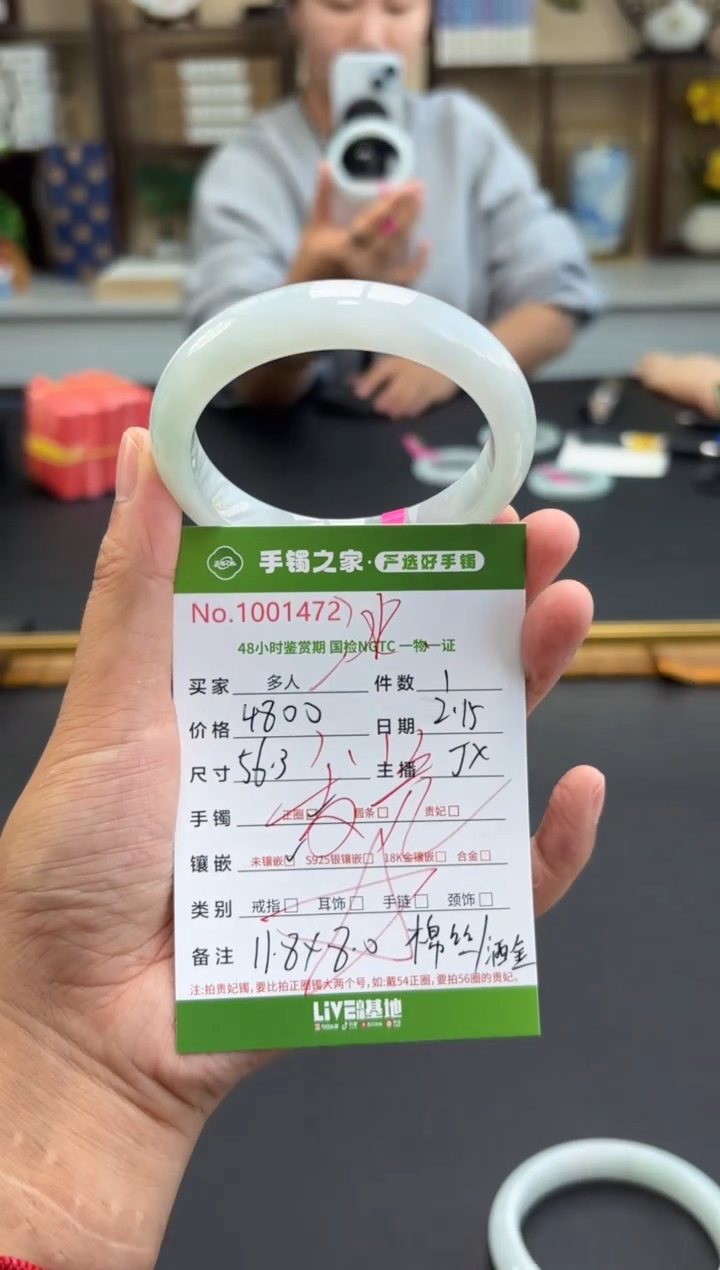 手镯之家·严选好手镯
No.1001472
48小时鉴赏期 国检NGTC 一物一证
买家 多人 件数 1
价格 4800 日期 2.15
尺寸 56.3 主播 JX
手镯 正圈 圆条 贵妃
镶嵌 未镶嵌 S925银镶嵌 18K金镶嵌 合金
类别 戒指 耳饰 手链 颈饰
备注 11.8×8.0 棉丝/洒金
注:拍贵妃镯,要比拍正圈镯大两个号,如:戴54正圈,要拍56圈的贵妃。
LIVE直播基地